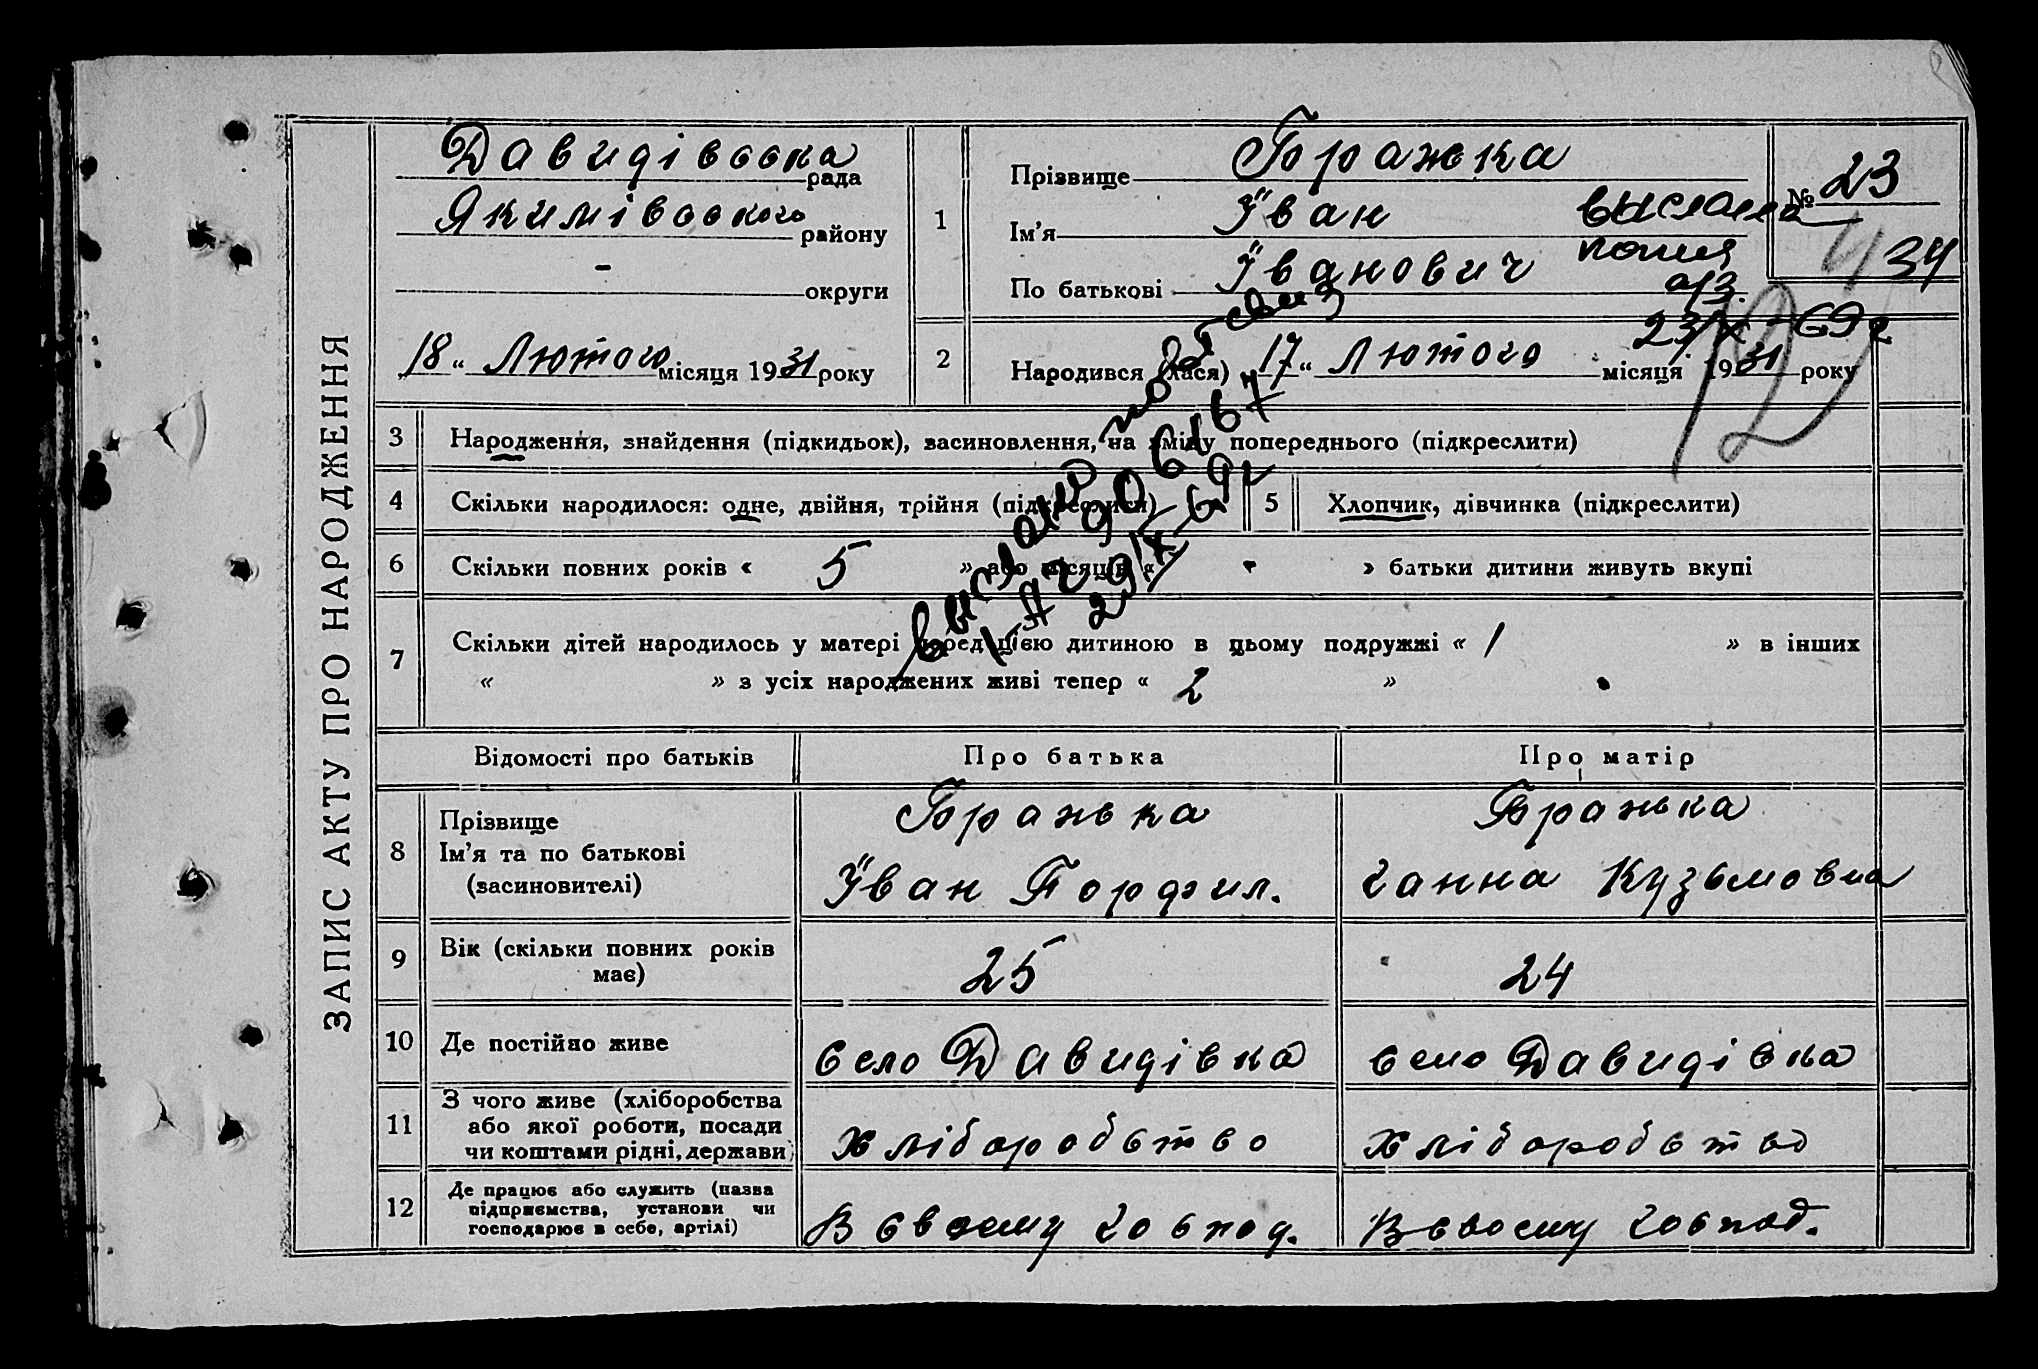 ЗАПИС АКТУ ПРО НАРОДЖЕННЯ
Давидівська рада
Якимівського району
- округи
18 " Лютого місяця 1931 року
1
Прізвище
Ім'я Іван
По батькові Іванович
№ 23
34
выслана
копия
23/X 69г
12
2
Народився (лася) 17 " Лютого місяця 1931 року
3 Народження, знайдення (підкидьок), засиновлення, на зміну попереднього (підкреслити)
4 Скільки народилося: одне, двійня, трійня (підкреслити)
5 Хлопчик, дівчинка (підкреслити)
6 Скільки повних років « 5 » або місяців « - » батьки дитини живуть вкупі
7 Скільки дітей народилось у матері перед цією дитиною в цьому подружжі « 1 » в інших
« » з усіх народжених живі тепер « 2 »
выслано повт свид
I-АГ 906167
29/X-69г
Відомості про батьків
Про батька
Про матір
8 Прізвище
Ім'я та по батькові
(засиновителі)
Іван Порфил.
Ганна Кузьмовна
9 Вік (скільки повних років
має)
25
24
10 Де постійно живе
село Давидівка
село Давидівка
11 З чого живе (хліборобства
або якої роботи, посади
чи коштами рідні, держави)
хліборобство
хліборобство
12 Де працює або служить (назва
підприємства, установи чи
господарює в себе, артілі)
В своєму господ.
В своєму господ.